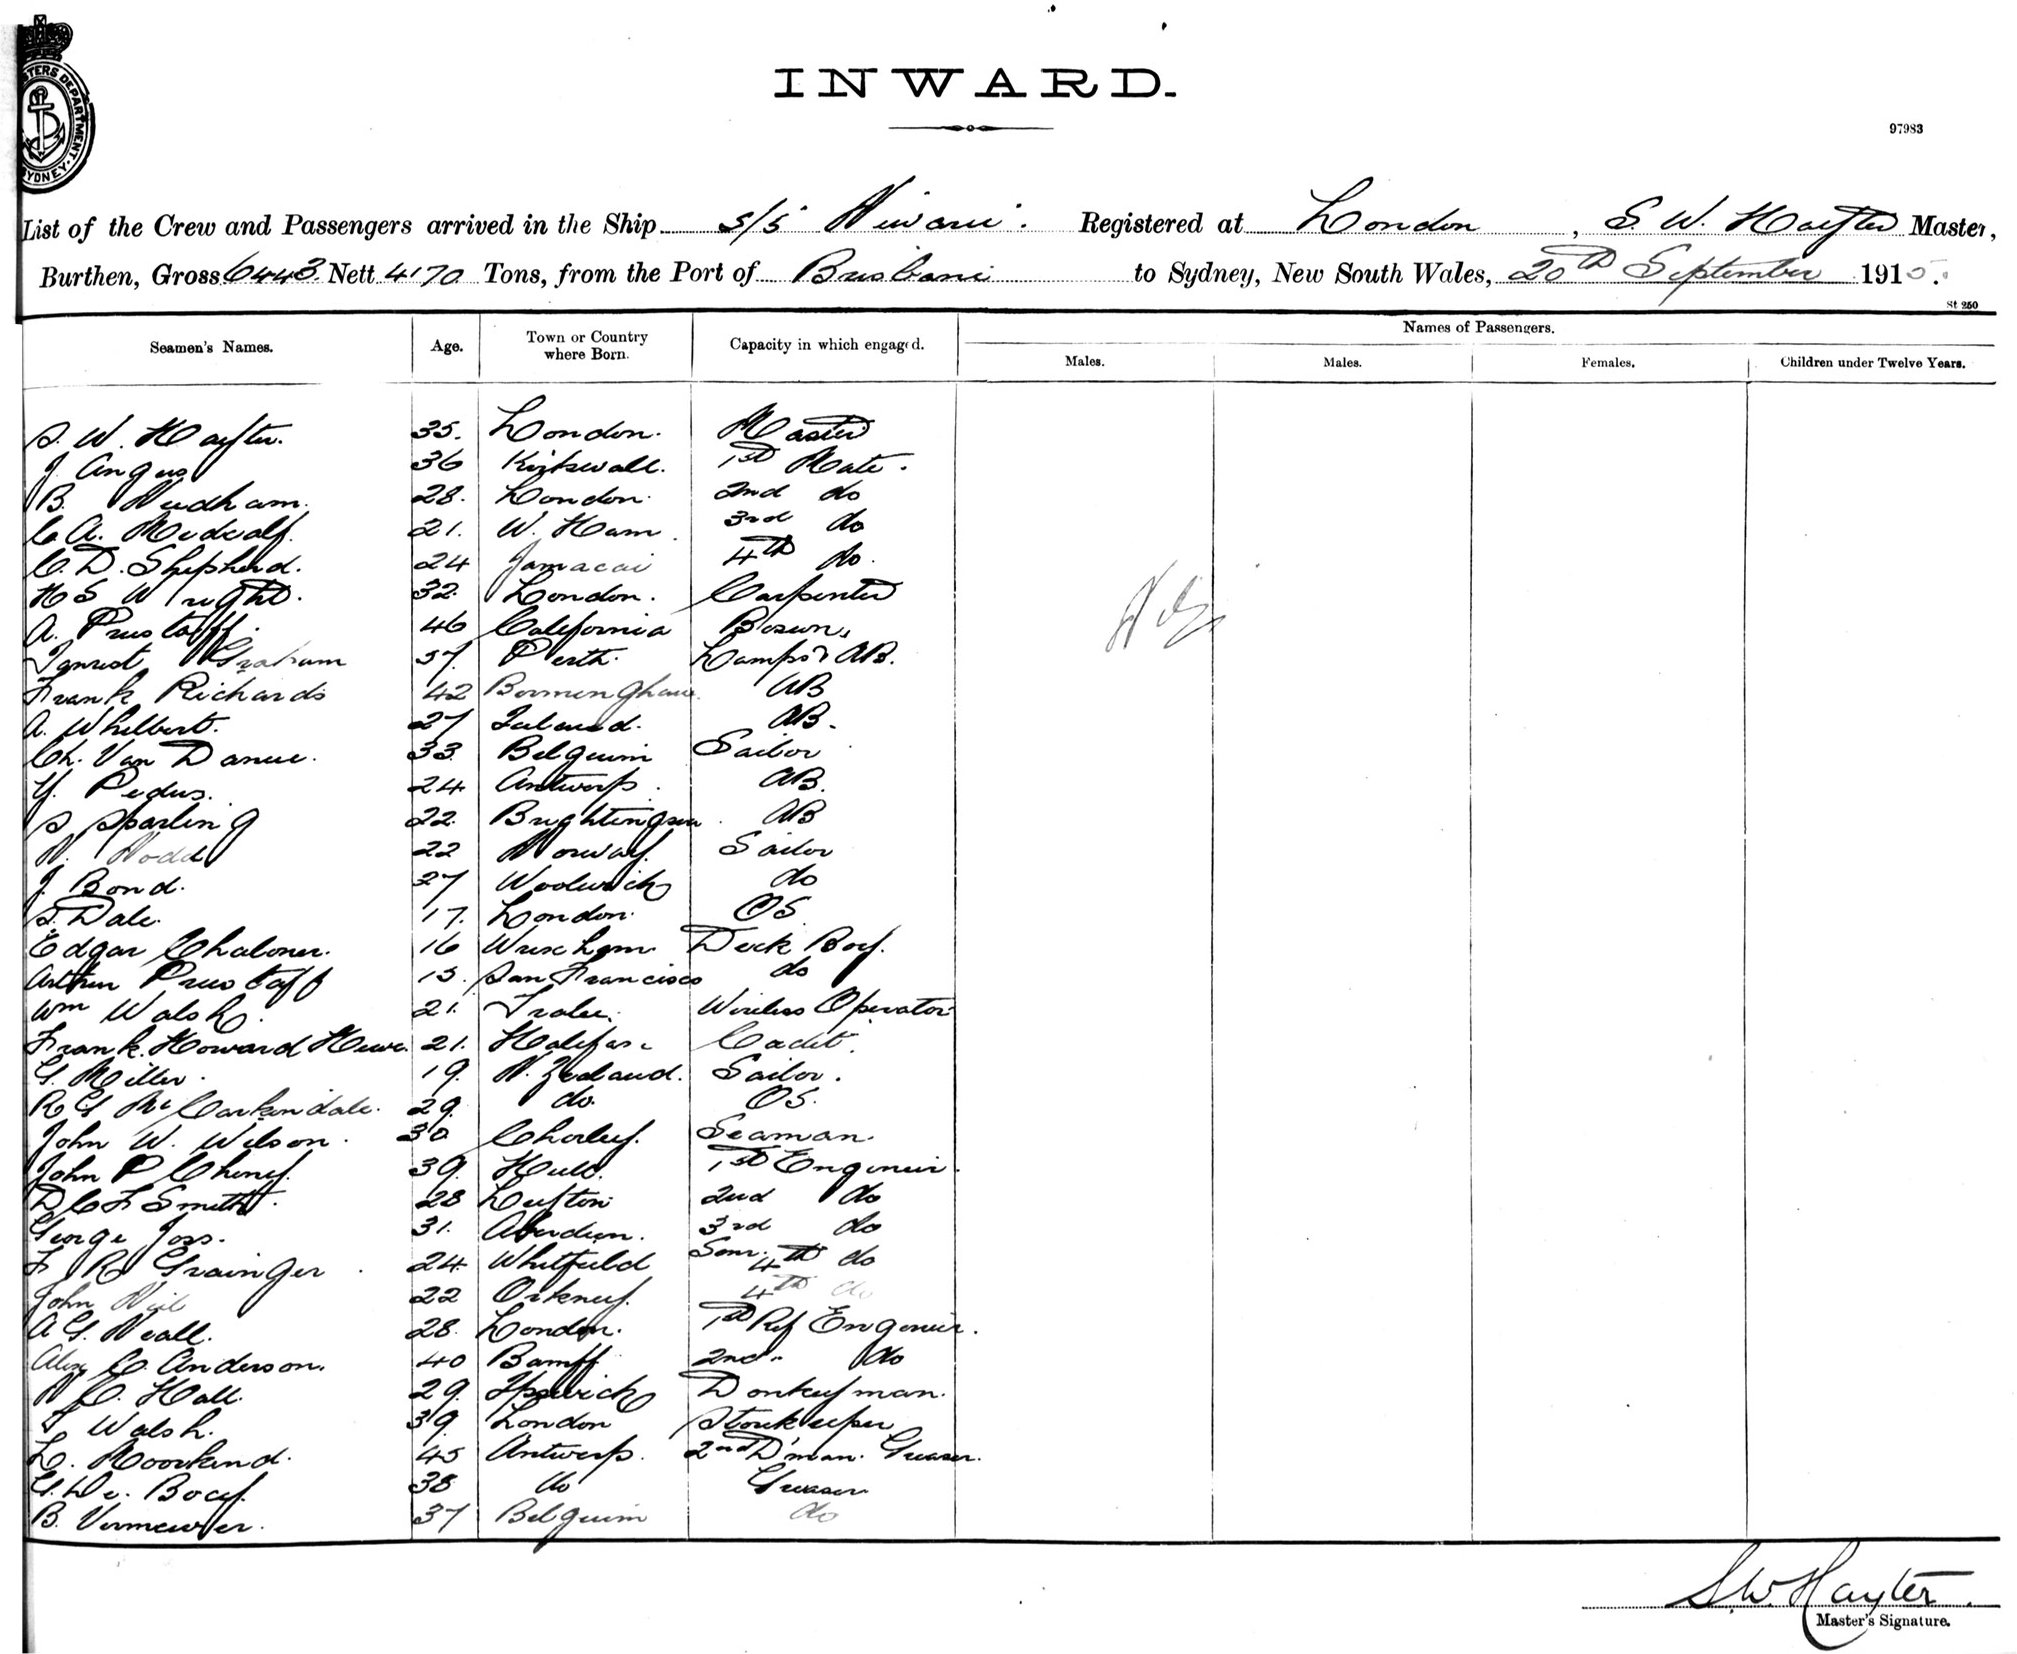 INWARD.
97983
MASTERS DEPARTMENT
SYDNEY
List of the Crew and Passengers arrived in the Ship s/s Registered at London, S. W. Hayter Master,
Burthen, Gross 6443 Nett 4170 Tons, from the Port of Brisbane to Sydney, New South Wales, 20th September 1915.
St 250
Seamen's Names. Age. Town or Country where Born. Capacity in which engaged. Names of Passengers.
Males. Males. Females. Children under Twelve Years.
S. W. Hayter. 35. London. Master
J Angus 36 Kirkwall. 1st Mate.
B. Needham. 28. London. 2nd do
C. A. Medcalf. 21. W. Ham. 3rd do
C. D. Shepherd. 24 Jamacai 4th do.
H S Wright. 32. London. Carpenter
A. Prustaff. 46 California Bosun,
Graham 57. Perth. Lamps & AB.
Frank Richards 42 Bermengham. AB
A. Whilbert. 27 AB.
Ch. Van Danue. 33 Belguim Sailor
Y. 24 Antwerp. AB.
S Sparling 22. Brightingsea AB
N. 22 Norway. Sailor
J. Bond. 27 Woolwich do
S. Dale. 17. London. OS
Edgar Chaloner. 16 Wrexham. Deck Boy.
Arthur Prustaff 15. San Francisco do
Wm Walsh. 21. Tralee. Wireless Operator
Frank Howard 21. Halifax Cadet.
G. Miller. 19. N. Zealand. Sailor.
R G Mc Corkindale. 29. do. OS.
John W. Wilson. 30 Chorley. Seaman.
John P Cheney. 39. Hull. 1st Engeneir.
D C F Smith. 28 Leyton 2nd do
George Joss. 31. Aberdeen. 3rd do
F R Grainger. 24 Whitfield Senr. 4th do
John 22 Orkney. 4th do
A G. Neall. 28. London. 1st Ref Engeneir.
Alex C. Anderson. 40 Bamff 2nd do
N C. Hall. 29. Ipswich Donkeyman.
T Walsh. 39. London Storekeeper
L. Moorkend. 45 Antwerp. 2nd D'man. Greaser.
G. De. Boey. 38 do Greaser
B. Vermewer. 37 Belguim do
S. W. Hayter.
Master's Signature.